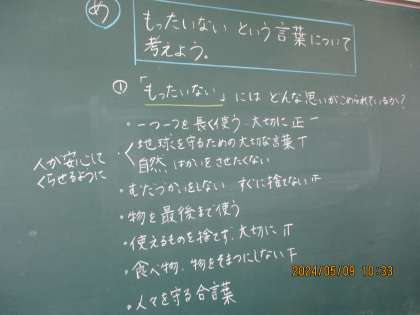 め
もったいない という言葉について
考えよう。
① 「もったいない」には どんな思いがこめられているか?
・一つ一つを長く使う 大切に 正一
地球を守るための大切な言葉 T
自然、はかいをさせたくない
人が安心して
くらせるように
・むだづかいをしない すぐに捨てない 正
・物を最後まで使う
・使えるものを捨てず、大切に 正
・食べ物、物をそまつにしない 下
・人々を守る合言葉
2024/05/09 10:33